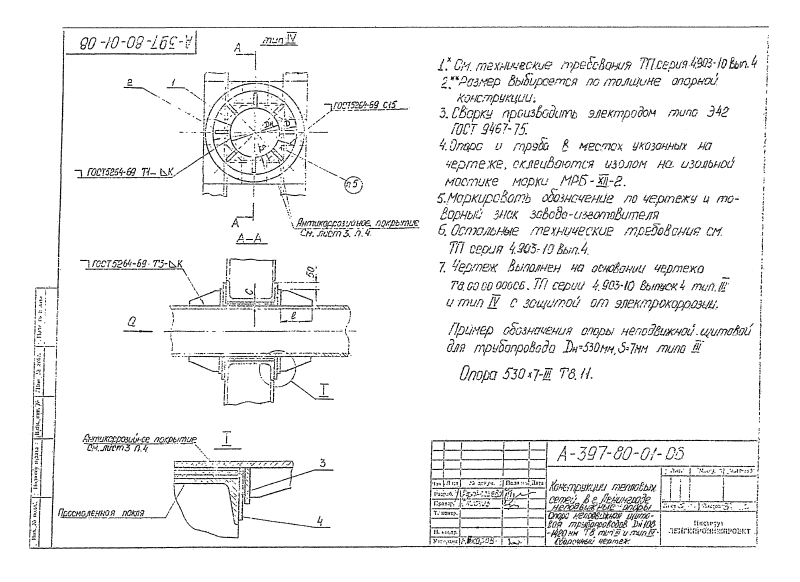 А-397-80-01-08
А
тип IV
2
1
ГОСТ5264-69 С15
Dн
D
ГОСТ5264-69 Т1-⊿К
п5
А
Антикоррозийное покрытие
См. лист 3. п. 4.
А-А
ГОСТ5264-69-Т3-⊿К
50
С
ℓ
Q
I
Антикоррозийное покрытие
См. лист 3 п. 4
I
3
Просмоленная пакля
4
1.* См. технические требования ТП.серия 4.903-10 Вып. 4
2.** Размер выбирается по толщине опорной
конструкции.
3. Сварку производить электродом типа Э42
ГОСТ 9467-75.
4. Опора и труба в местах указанных на
чертеже, склеиваются изолом на изольной
мастике марки МРБ-XII-2.
5. Маркировать обозначение по чертежу и то-
варный знак завода-изготовителя
6. Остальные технические требования см.
ТП серия 4.903-10 Вып.4.
7. Чертеж выполнен на основании чертежа
Т8.00.00.000СБ. ТП серии 4.903-10 выпуск 4 тип. III
и тип IV с защитой от электрокоррозии.
Пример обозначения опоры неподвижной щитовой
для трубопровода Dн=530мм, S=7мм типа III
Опора 530×7-III Т8.11.
А-397-80-01-08
Конструкции тепловых
сетей в г. Ленинграде
неподвижные опоры
Опора неподвижная щито-
вая трубопроводов Dн 108
-1420 мм Т8 тип III и тип IV
Сборочный чертеж
№ докум.
Подпись
Дата
Разраб.
Провер.
Т. контр.
Н. контр.
Утвердил
Институт
ЛЕНГИПРОИНЖПРОЕКТ